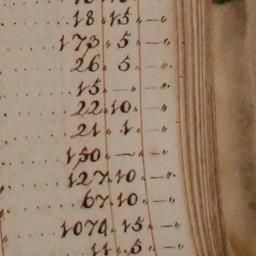 18 „ 15 „ — „
173 „ 5 „ — „
26 „ 5 „ — „
15 „ — „ — „
22 „ 10 „ — „
21 „ 1 „ — „
150 „ — „ — „
127 „ 10 „ — „
67 „ 10 „ — „
1074 „ 15 „ — „
11 „ 5 „ — „